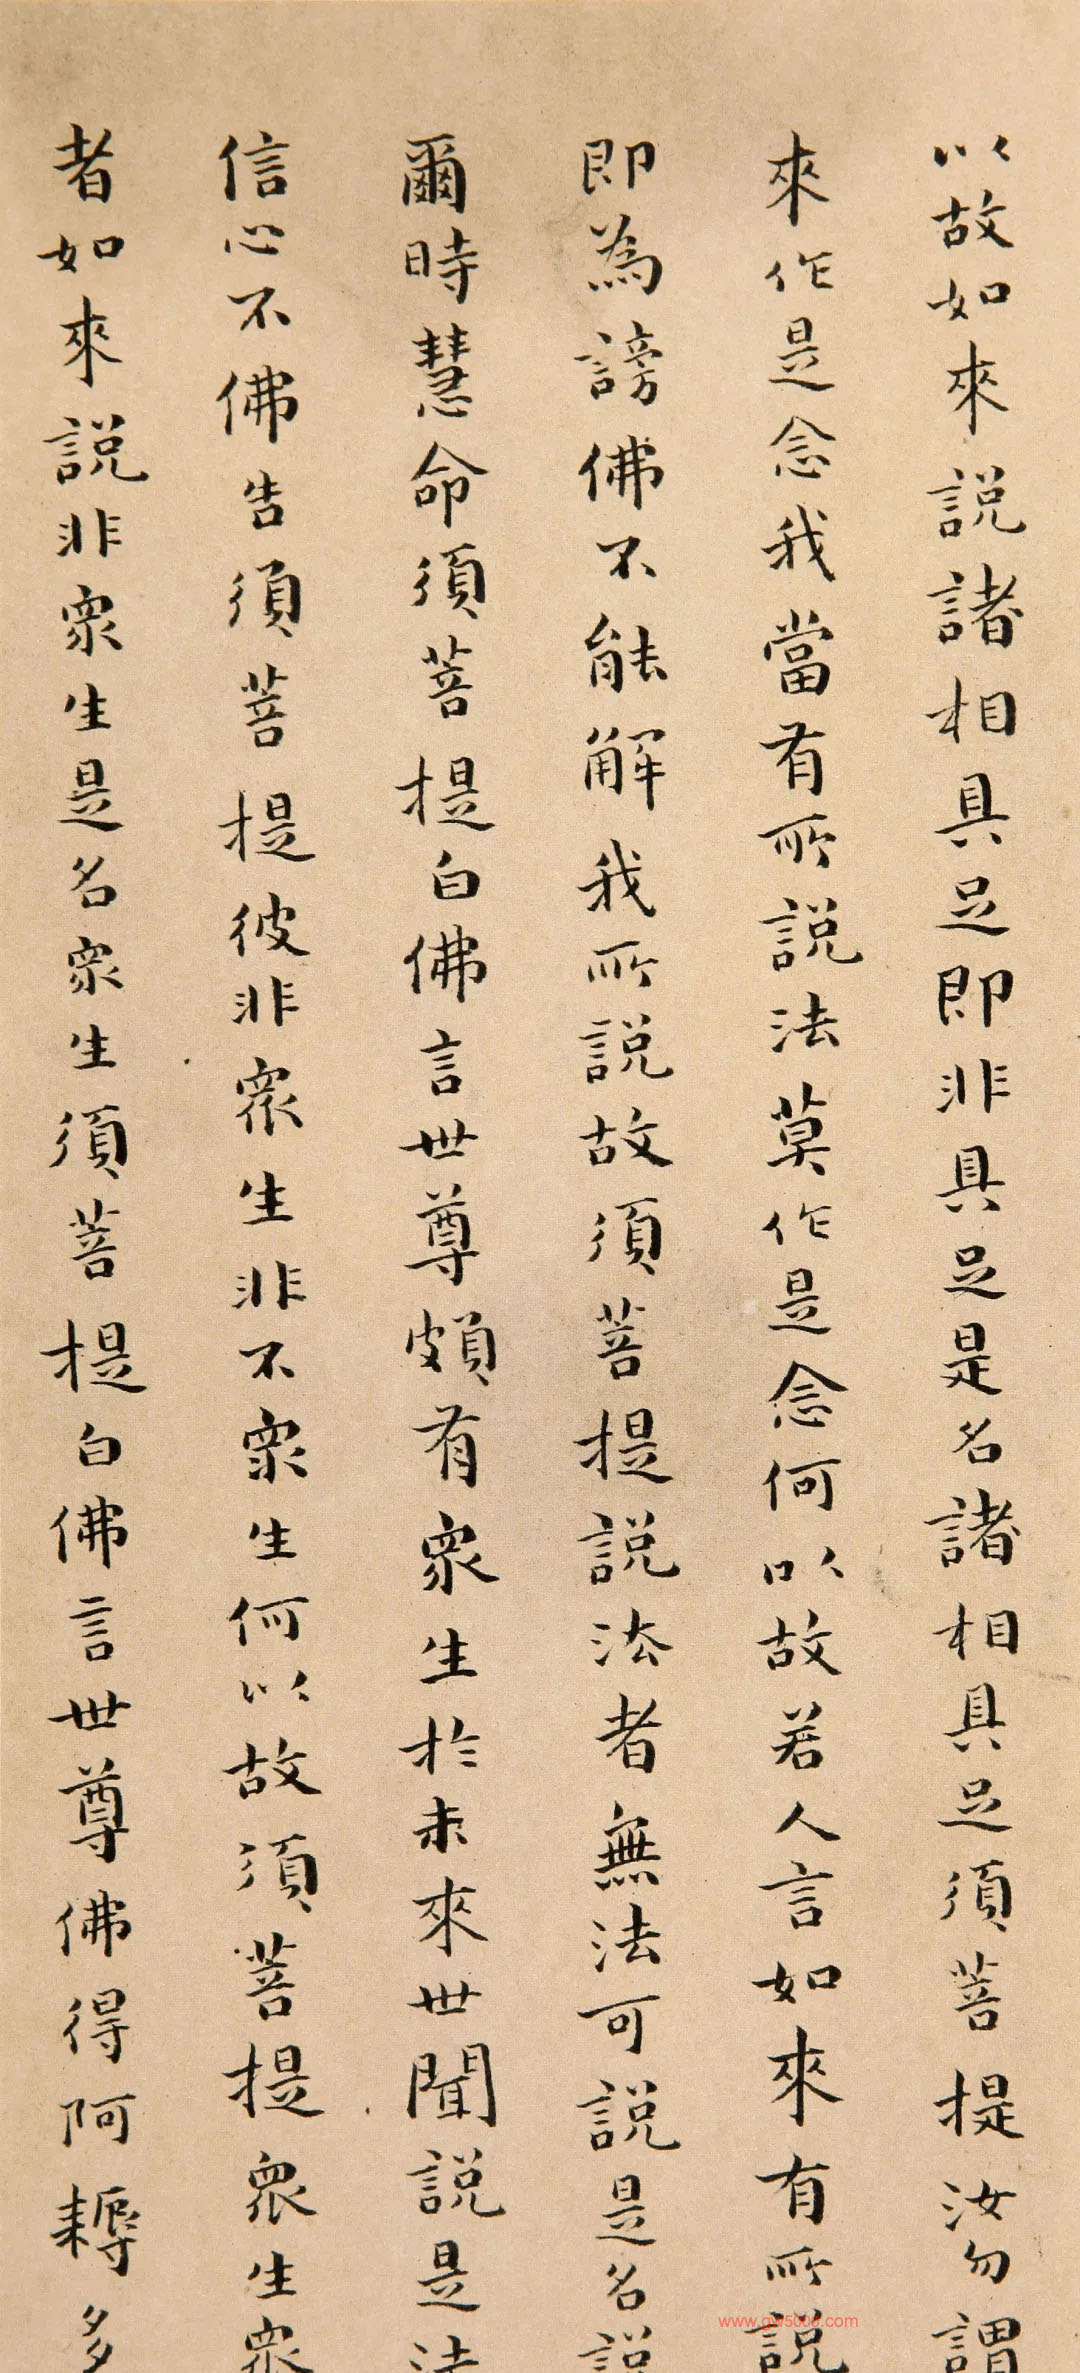 以故如來説諸相具足即非具足是名諸相具足須菩提汝勿謂
來作是念我當有所説法莫作是念何以故若人言如來有所説
即為謗佛不能解我所説故須菩提説法者無法可説是名説
爾時慧命須菩提白佛言世尊頗有眾生於未來世聞説是法
信心不佛告須菩提彼非眾生非不眾生何以故須菩提眾生眾
者如來説非眾生是名眾生須菩提白佛言世尊佛得阿耨多
www.gw5000.com